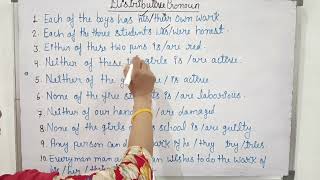 Distributive Pronoun
1 Each of the boys has his/their own work.
2 Each of the three students was/were honest.
3 Either of these two pens is/are red.
4 Neither of these girls is/are active.
5 Neither of the is/active
6 None of the five students is/are laborious.
7 Neither of our hand is/are damaged
8 None of the girls school is/are guilty
9 Any person can do work if he/they try/tries.
10 Everyman man wishes to do the work of
his/her/